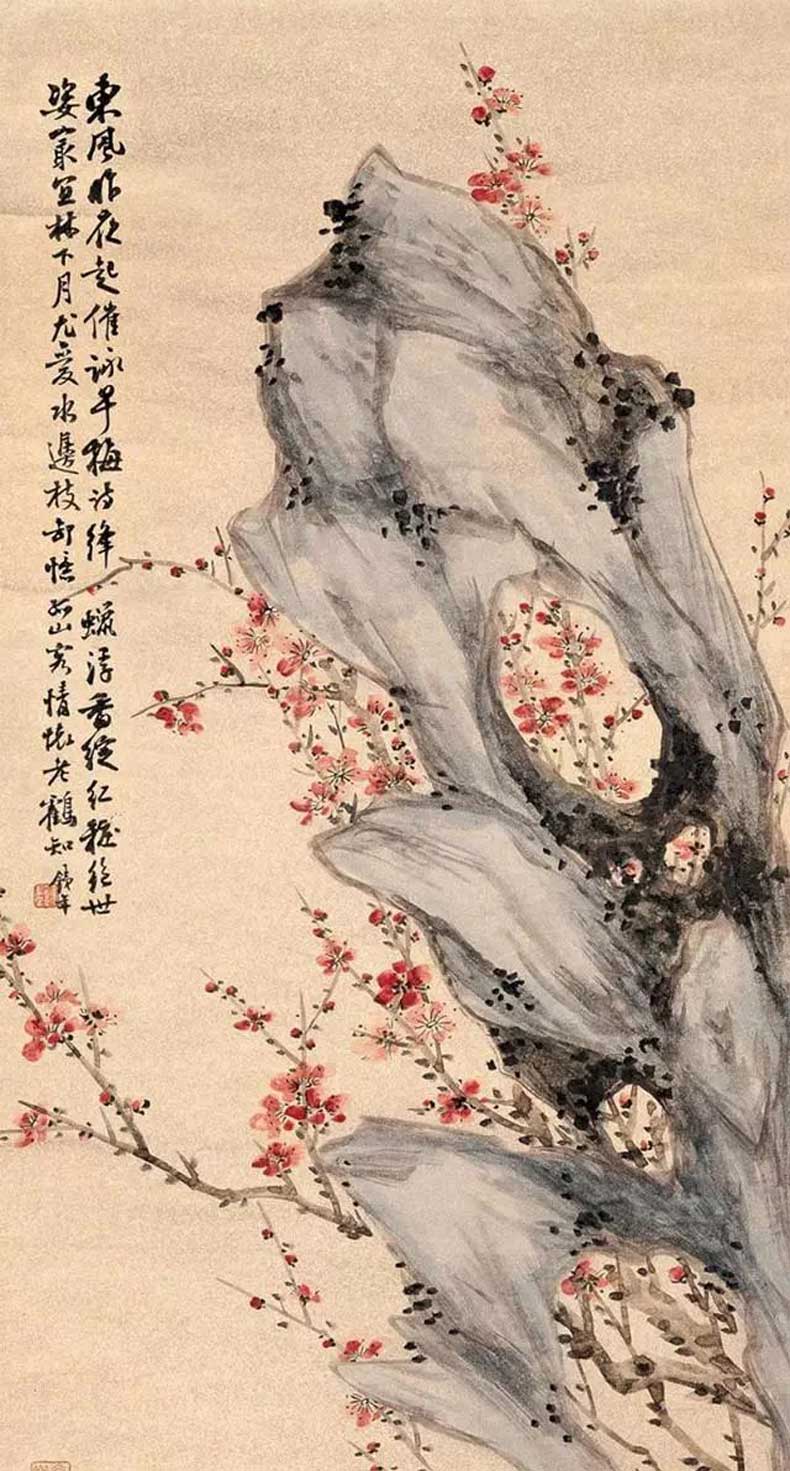 東風昨夜起催詠早梅詩絳蠟浮香綻紅粧絕世
姿最宜林下月尤愛水邊枝卻憶孤山客情懷老鶴知 銕年